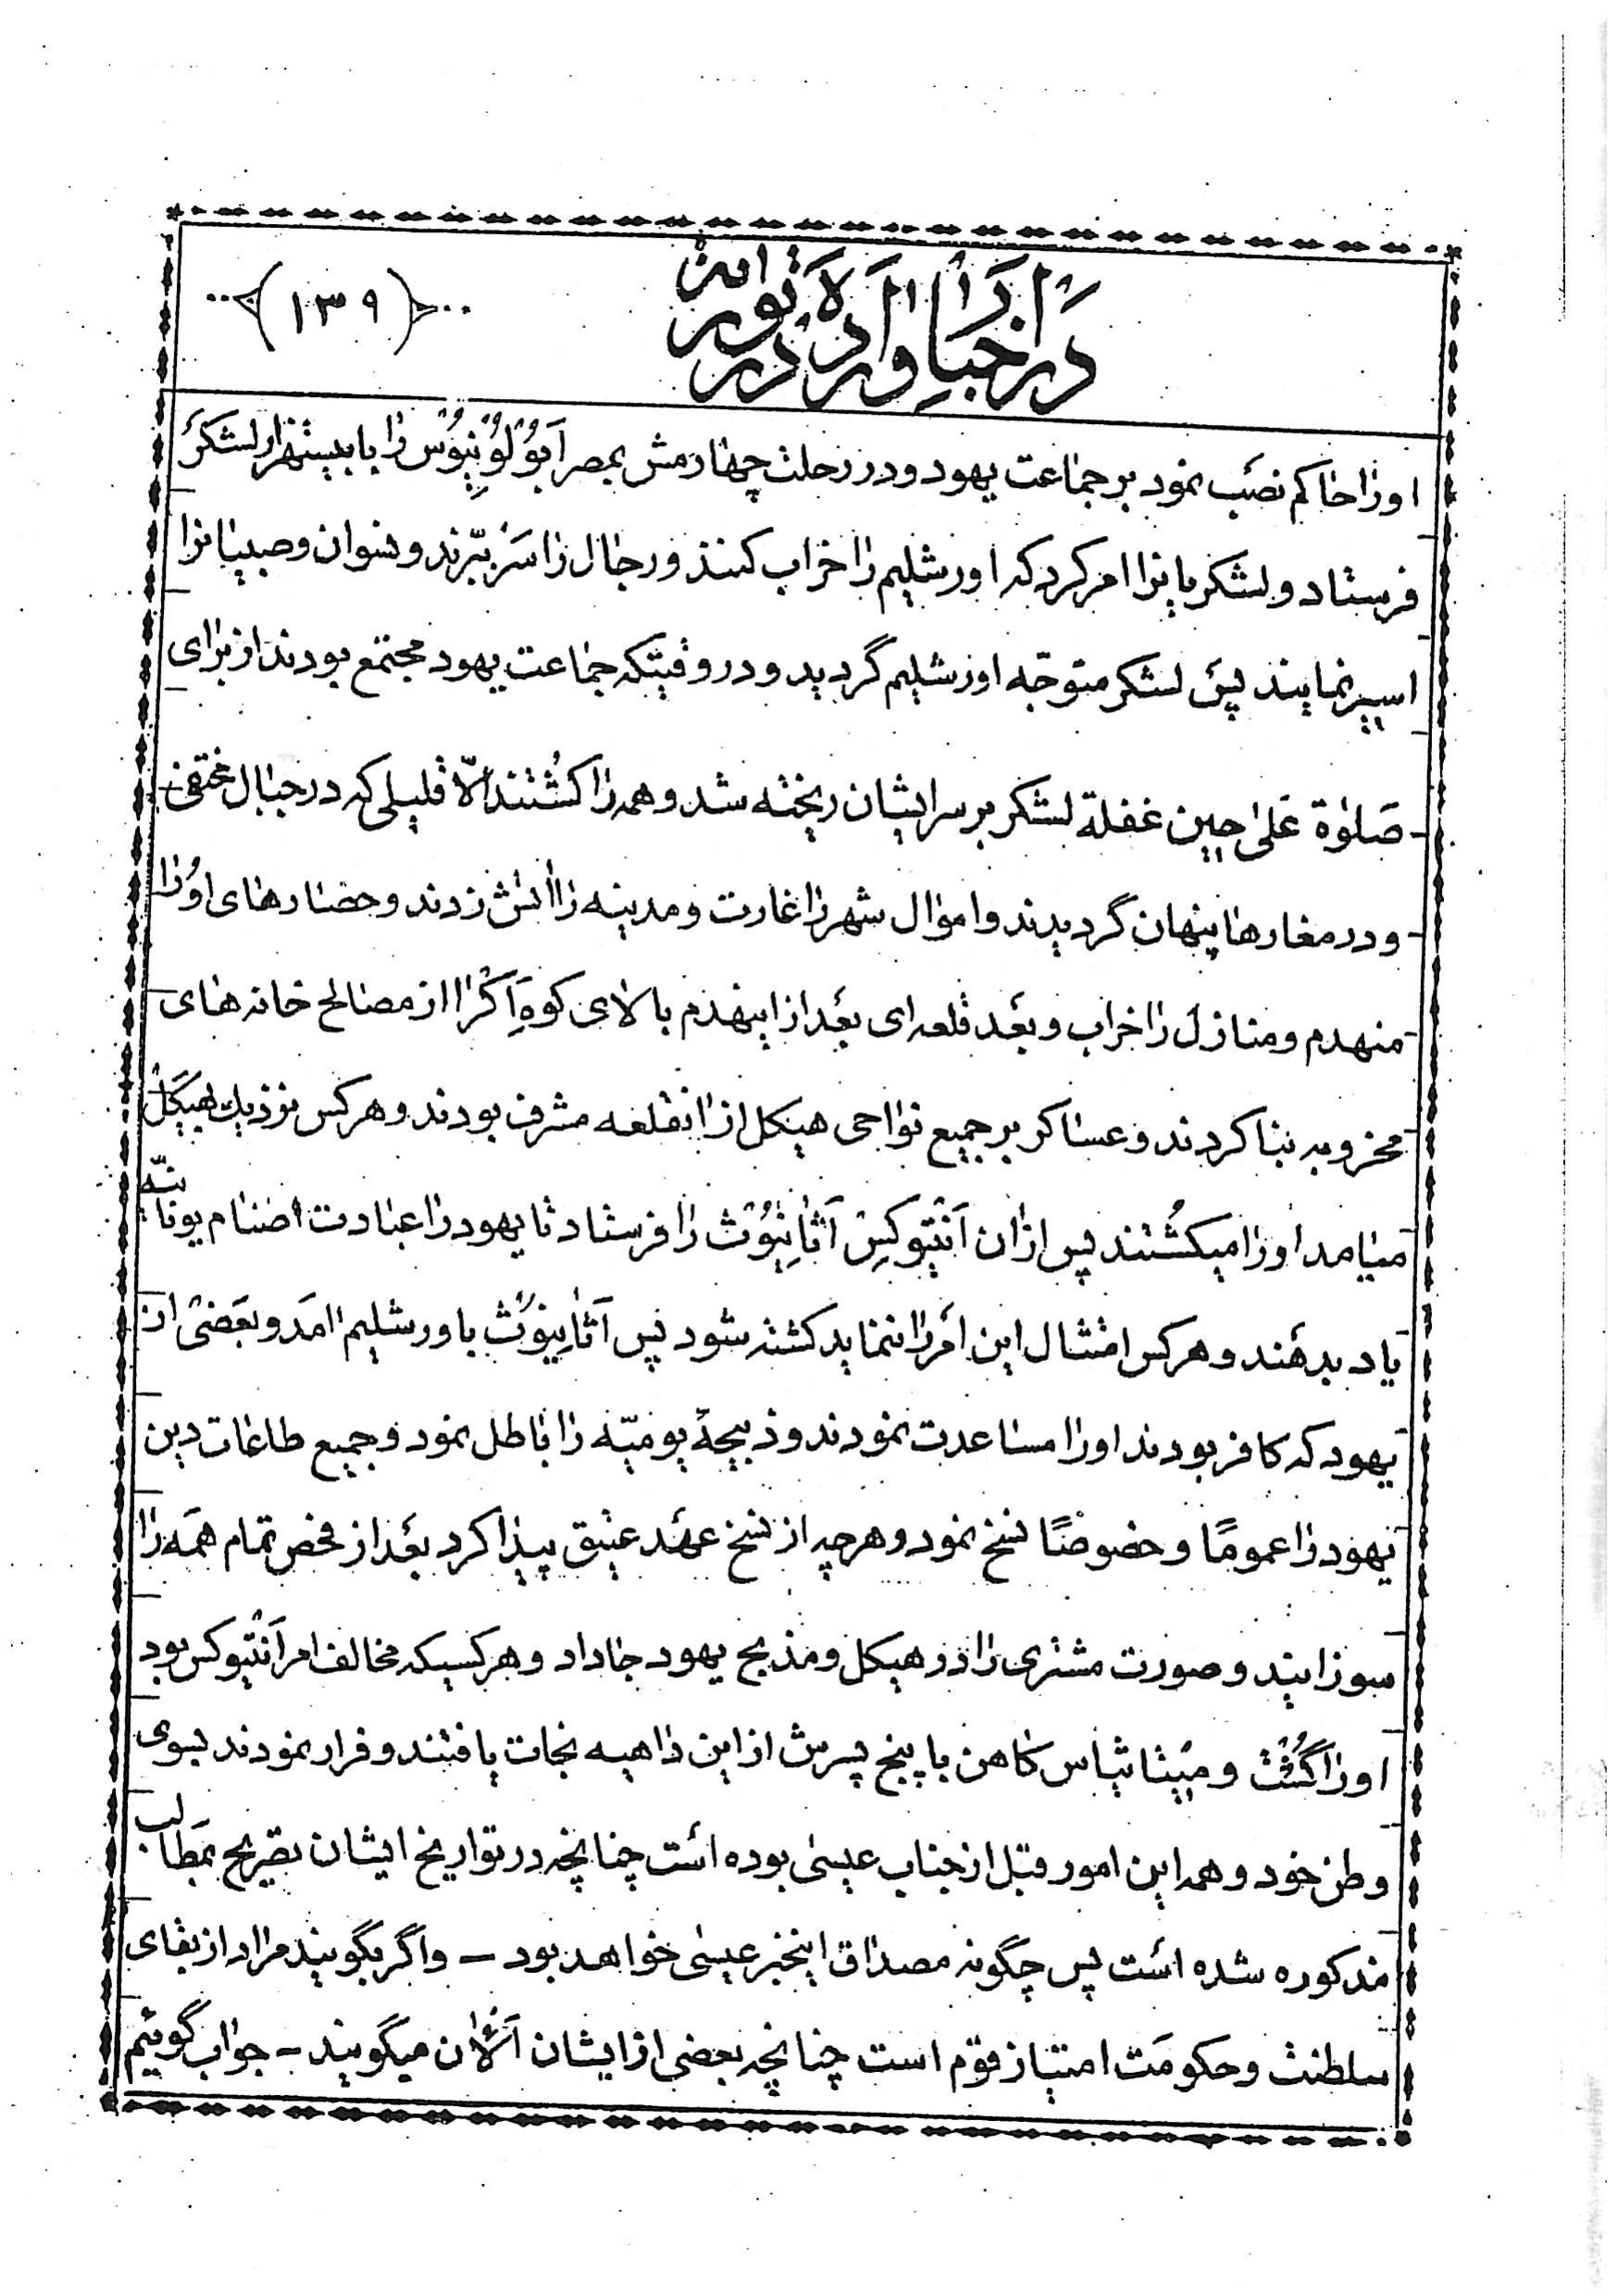 در اخبار وارده در توراة
(۱۳۹)
اورا حاکم نصب نمود بر جماعت یهود و در رحلت چهارمش بمصر اَبُولُونِیُوس را با بیستهزار لشکر
فرستاد و لشکریانرا امر کرد که اورشلیم را خراب کنند و رجال را سر ببّرند و نسوان و صبیانرا
اسیر نمایند پس لشکر متوجّه اورشلیم گردید و در وقتیکه جماعت یهود مجتمع بودند از برای
صَلوٰة عَلیٰ حین غفلة لشکر بر سر ایشان ریخته شد و همه را کُشتند الّا قلیلی که در جبال مختفی
و در مغارها پنهان گردیدند و اموال شهر را غارت و مدینه را اتش زدند و حصارهای اورا
منهدم و منازل را خراب و بعد قلعه‌ای بعد از اینهدم بالای کوه اَکرا از مصالح خانه های
مخروبه بنا کردند و عساکر بر جمیع نواحی هیکل از انقلعه مشرف بودند و هر کس نزدیك هیکل
میامد اورا میکُشتند پس ازان اَنتیوکس اَثانِیُوث را فرستاد تا یهود را عبادت اصنام یونانیّه
یاد بدهند و هر کس امتثال این امر را ننماید کشته شود پس اَثانِیُوث باورشلیم امَد و بعضی از
یهود که کافر بودند اورا مساعدت نمودند و ذبیحهٔ یومیّه را باطل نمود و جمیع طاعات دین
یهود را عمومًا و خصوصًا نسخ نمود و هر چه از نسخ عهد عتیق پیدا کرد بعد از فحص تمام همه را
سوزانید و صورت مشتری را در هیکل و مذبح یهود جا داد و هر کسیکه مخالف امر اَنتیوکس بود
اورا کُشت و میتاثیاس کاهن با پنج پسرش از این داهیه نجات یافتند و فرار نمودند بسوی
وطن خود و همه این امور قبل از جناب عیسی بوده است چنانچه در تواریخ ایشان تصریح بمطالب
مذکوره شده است پس چگونه مصداق اینخبر عیسی خواهد بود – و اگر بگویند مراد از بقای
سلطنت و حکومت امتیاز قوم است چنانچه بعضی از ایشان اَلْاٰن میگویند – جواب گوئیم